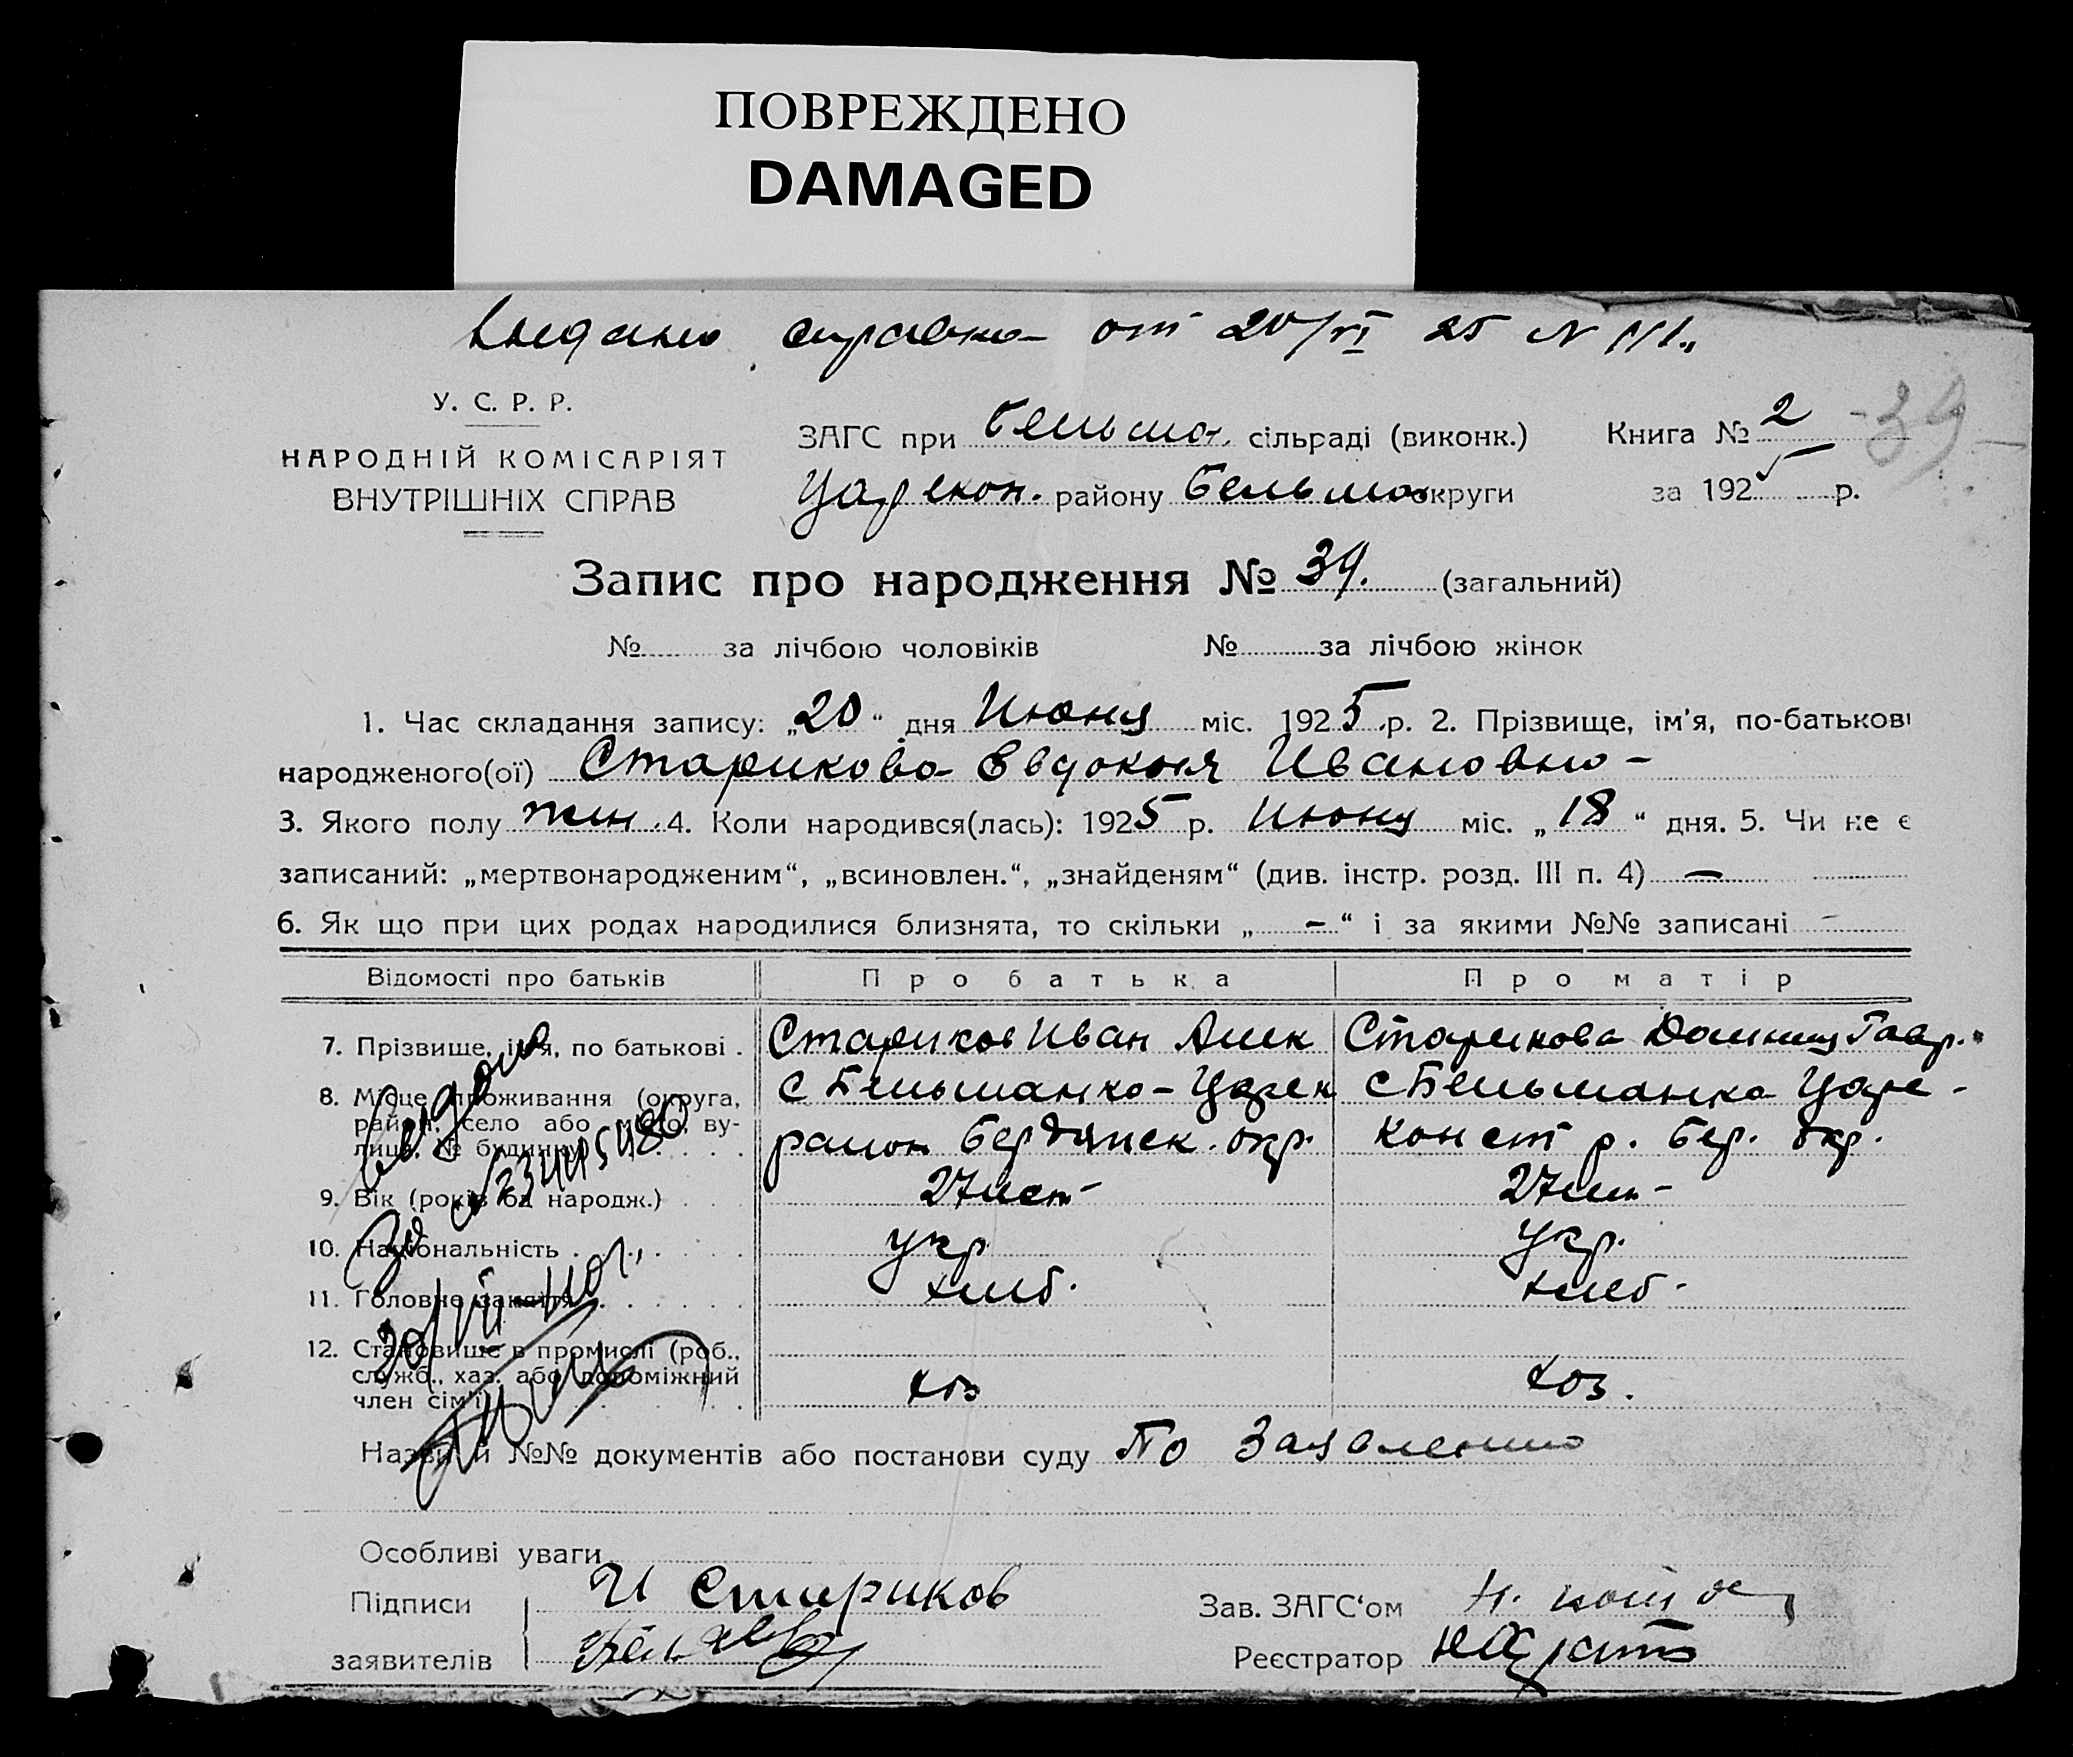 ПОВРЕЖДЕНО
DAMAGED
справка от 20/VI 25 N 111
У. С. Р. Р.
НАРОДНІЙ КОМІСАРІЯТ
ВНУТРІШНІХ СПРАВ
ЗАГС при Бельман. сільраді (виконк.)
Царекон. району округи
Книга № 2
за 1925 р.
39
Запис про народження № 39. (загальний)
№ за лічбою чоловіків № за лічбою жінок
1. Час складання запису: „20“ дня Июня міс. 1925 р. 2. Прізвище, ім'я, по-батькові
народженого(ої) Старикова Евдокия Ивановна -
3. Якого полу жен. 4. Коли народився(лась): 1925 р. Июня міс. „18“ дня. 5. Чи не є
записаний: „мертвонародженим“, „всиновлен.“, „знайденям“ (див. інстр. розд. III п. 4) —
6. Як що при цих родах народилися близнята, то скільки „-“ і за якими №№ записані -
Відомості про батьків Про батька Про матір
7. Прізвище, ім'я, по батькові . Стариков Иван Алек Старикова Гавр.
8. Місце проживання (округа, район, село або місто, вулиця, № будинку
с Бельманка - Царек
район Бердянск. окр.
с Бельманка Царе-
конст р. Бер. окр.
9. Вік (років од народж.) 27 лет - 27 лет -
10. Національність укр укр.
11. Головне заняття хлеб. хлеб.
12. Становище в промислі (роб.,
служб., хаз. або допоміжний
член сім'ї) хоз хоз.
Выдано
20/VII-
Назви й №№ документів або постанови суду По Заявлению
Особливі уваги
Підписи
заявителів
И Стариков
Зав. ЗАГС'ом
Реєстратор